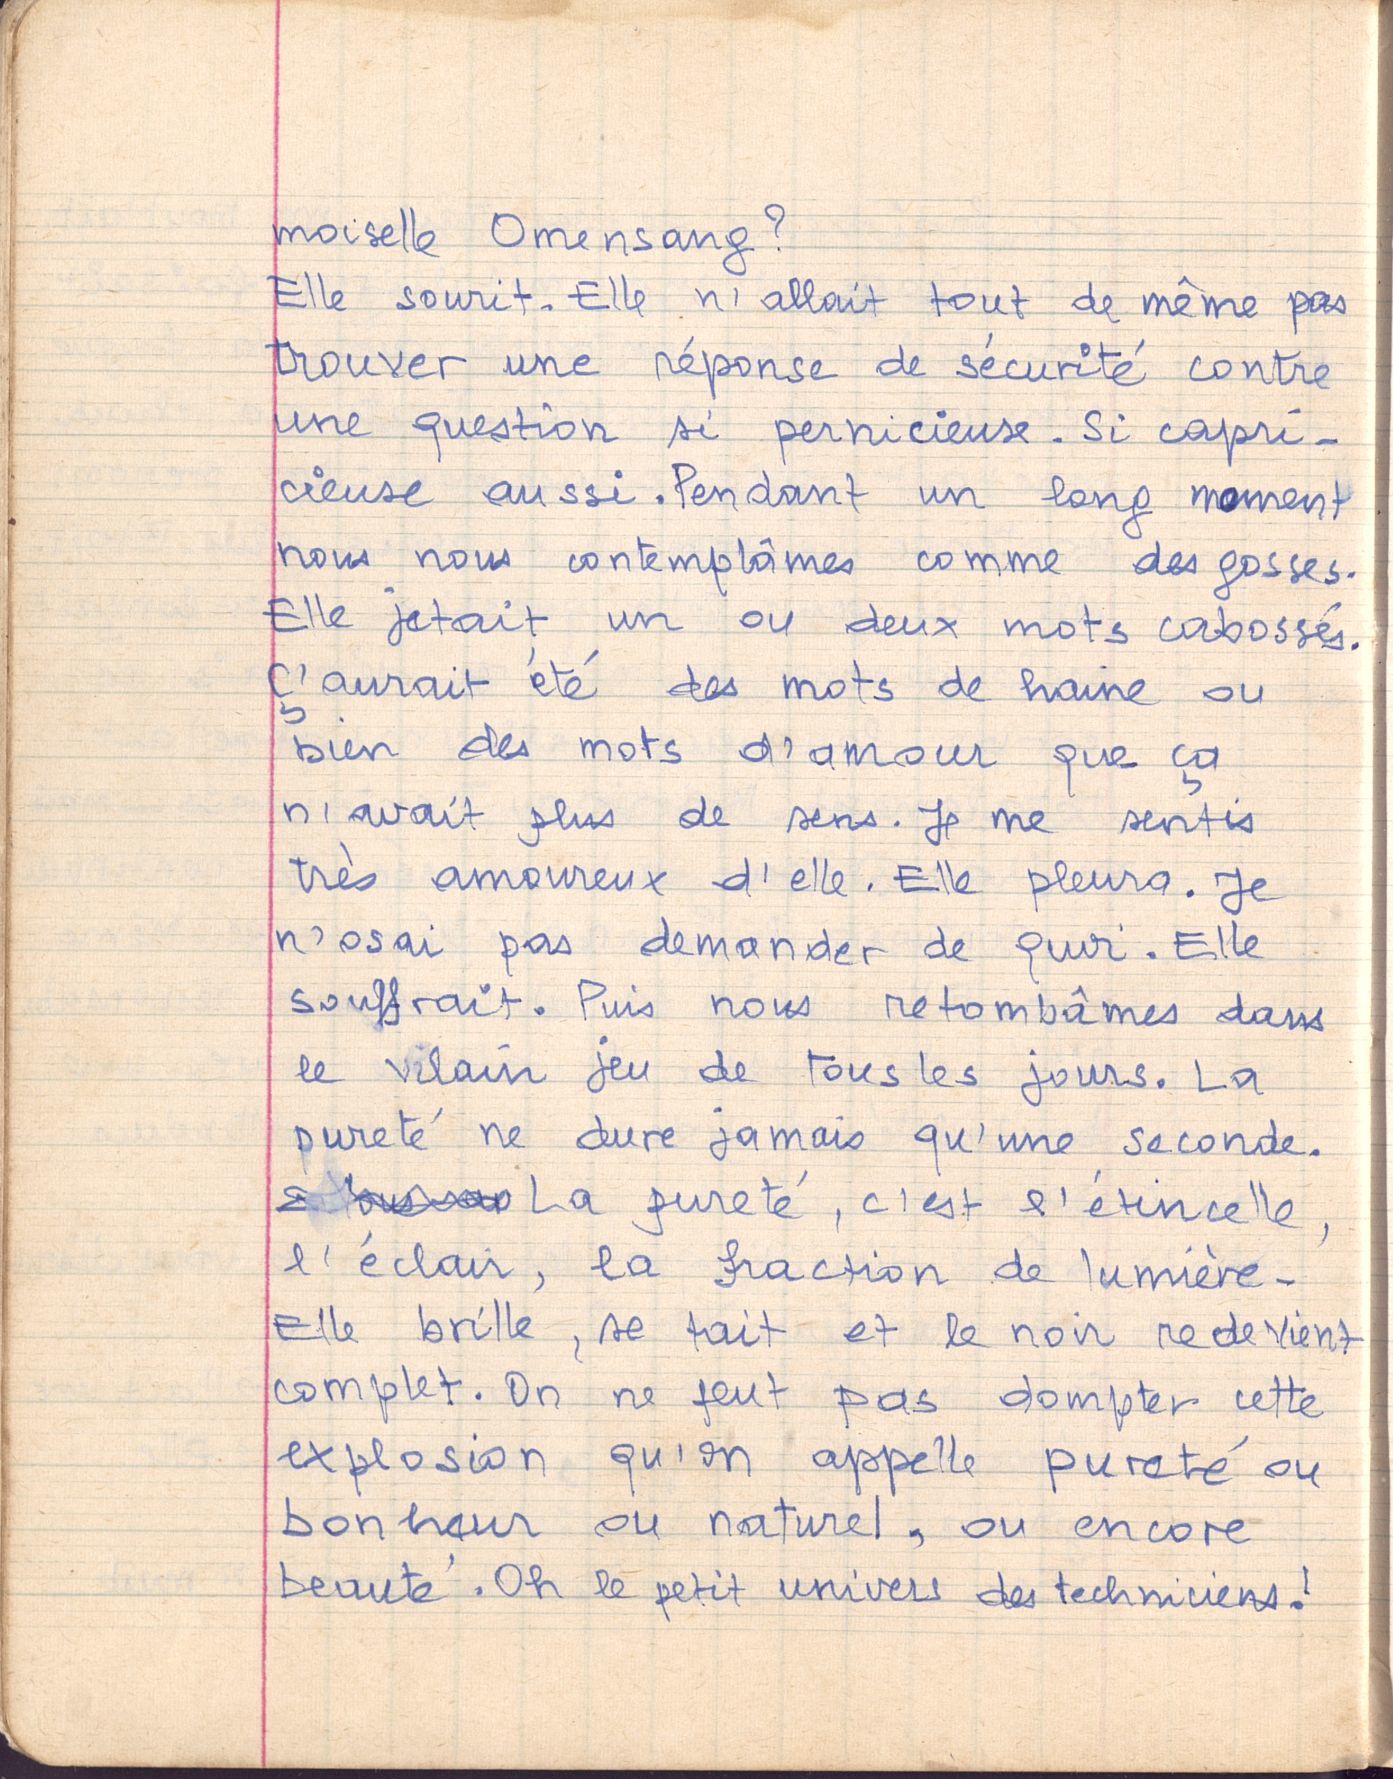 moiselle Omensang?
Elle sourit. Elle n'allait tout de même pas
trouver une réponse de sécurité contre
une question si pernicieuse. Si capri-
cieuse aussi. Pendant un long moment
nous nous contemplâmes comme des gosses.
Elle jetait un ou deux mots cabossés.
Ç'aurait été des mots de haine ou
bien des mots d'amour que ça
n'avait plus de sens. Je me sentis
très amoureux d'elle. Elle pleura. Je
n'osai pas demander de quoi. Elle
souffrait. Puis nous retombâmes dans
le vilain jeu de tous les jours. La
pureté ne dure jamais qu'une seconde.
La pureté, c'est l'étincelle,
l'éclair, la fraction de lumière-
Elle brille, se tait et le noir redevient
complet. On ne peut pas dompter cette
explosion qu'on appelle pureté ou
bonheur ou naturel, ou encore
beauté. Oh le petit univers des techniciens!